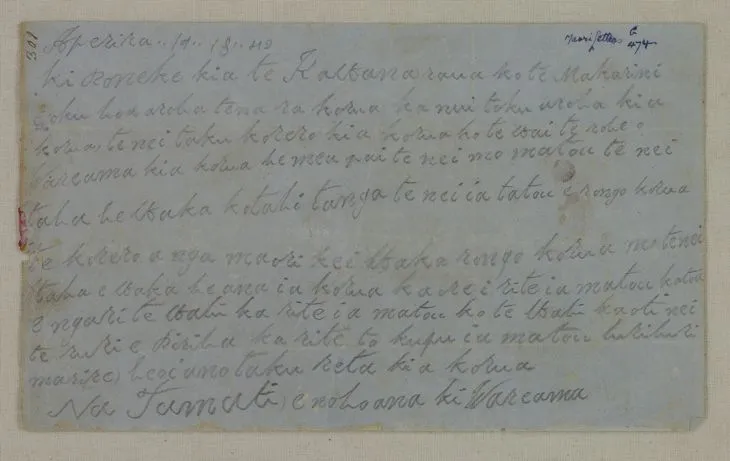 301
Maori Letters G 474
Aperira .. 19 ..
ki Poneke kia te Kawana raua ko te Makarini
e oku hoa aroha tena ra korua ka nui toku aroha ki a
korua, tenei taku korero ki a korua ko te
Wareama kia korua he mea pai tenei mo matou te nei
taha he Waka kotahi tanga tenei ia tatou e rongo korua
te korero a nga maori kei Whaka rongo korua mo tenei
e Waka heana ia korua kaore i rite ia matou katoa
e ngari te Wahi ka rite ia matou ko te Wahi kaoti nei
te ruri e Piriha ka rite to kupu ia matou huihui
marire, heoi ano taku reta ki a korua
Na Tamati, e noho ana ki Wareama